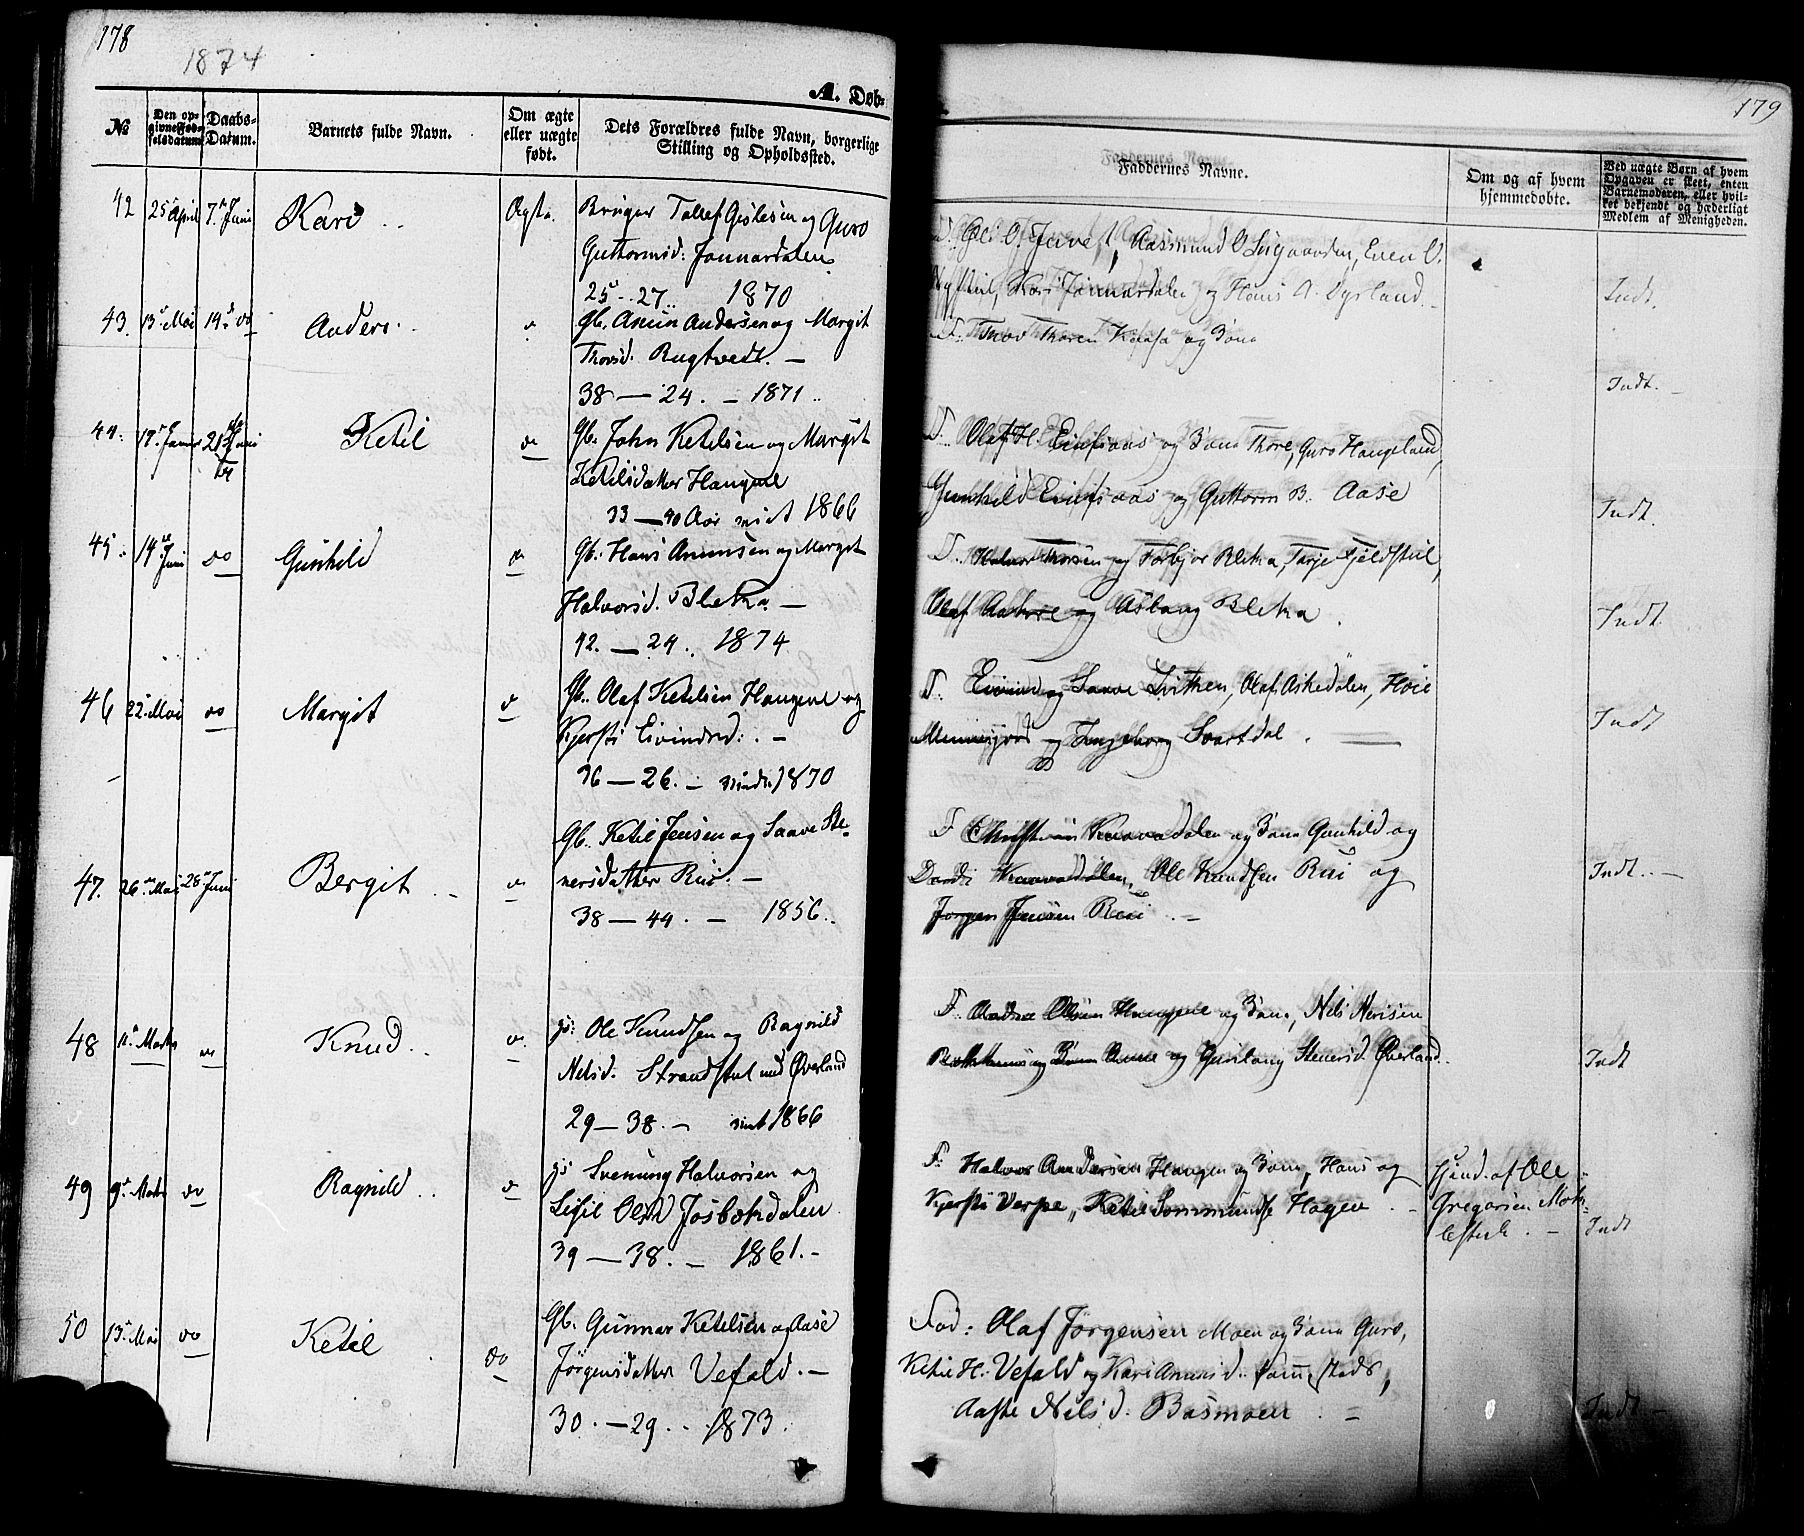 178
1874
A. Døb-
No
Den op-
givne Fød-
selsdatum
Daabs-
Datum.
Barnets fulde Navn.
Om ægte
eller uægte
født.
Dets Forældres fulde Navn, borgerlige
Stilling og Opholdssted.
42 25 April 7de Juni Kari Ægte. Bruger Tollef Gislesen og Guro
Guttormsd: Jonnardalen
25 - 27 1870
43. 13 Mai 14 do Anders Gb. Anun Andersen og Margit
Thovsd. Bugtvedt. —
38 — 24. — 1871
44. 21 Juni Ketil Gb. John Ketilsen og Margit
Ketilsdatter Haugene
33 — 40 Aar 1866
45. 14 Juni do Gunhild Gb. Hans Anunsen og Margit
Halvorsd. Bleka —
42. — 24. 1874
46 22 Mai do Margit Gb. Olaf Ketilsen Haugene og
Kjersti Eivindsd: . —
36 — 26. — 1870
47. 26 Mai 28 Juni Bergit Gb. Ketil Jensen og Saave Ste-
nersdatter Rui. —
38 — 44. — 1856.
48 11 Marts Knud Ole Knudsen og Ragnild
Nelsd. Strandstul Øverland
29 — 38. — 1866
49 9 Marts do Ragnild Svenung Halvorsen og
Olsd Josbekdalen
39 — 38. — 1861. -
50 13 Mai do Ketil do Gb. Gunnar Ketilsen og Aase
Jørgensdatter Vefald. —
30. — 29. - 1873.
179
Faddernes Navne.
Om og af hvem
hjemmedøbte.
Ved uægte Børn af hvem
Opgaven er skeet, enten
Barnemoderen, eller hvil-
ket bekjendt og hæderligt
Medlem af Menigheden.
O. Juve, Aasmund O. Even O.
Kari Jonnardalen og Hans A. Dyrland. Indt.
F. Thov Thoren Kaasa og Kona
Indt. -
F. Olaf H. og Kona Thore, Guro Haugeland,
Gunhild og Guttorm B. Aase Indt.
F. Halvor Thorsen og Torbjør Bleka, Tarje Fjeldstul,
Olaf og Aslaug Bleka. Indt.
F. Eivind og Saave Olaf Askedalen,
og Ingeborg Svartdal. — Indt
F. Knavadalen og Kona Gunhild og
Knavadalen, Ole Knudsen Rui og Indt. -
Jørgen Jensen Rui. -
F. Olsen Haugene og Kona, Nels
og Gunlaug Stenersd. Øverland. Indt
F. Halvor Andersen Haugen og Kona, Hans og
Kjersti Verpe, Ketil Hagen. - Indt
Hjmd. af Ole
Gregarsen Mok-
lestul. -
Fad: Olaf Jørgensen Moen og Kona Guro,
Ketil H. Vefald og Kari Anunsd. samestads,
Aaste Nelsd. Basmoen. = Indt -